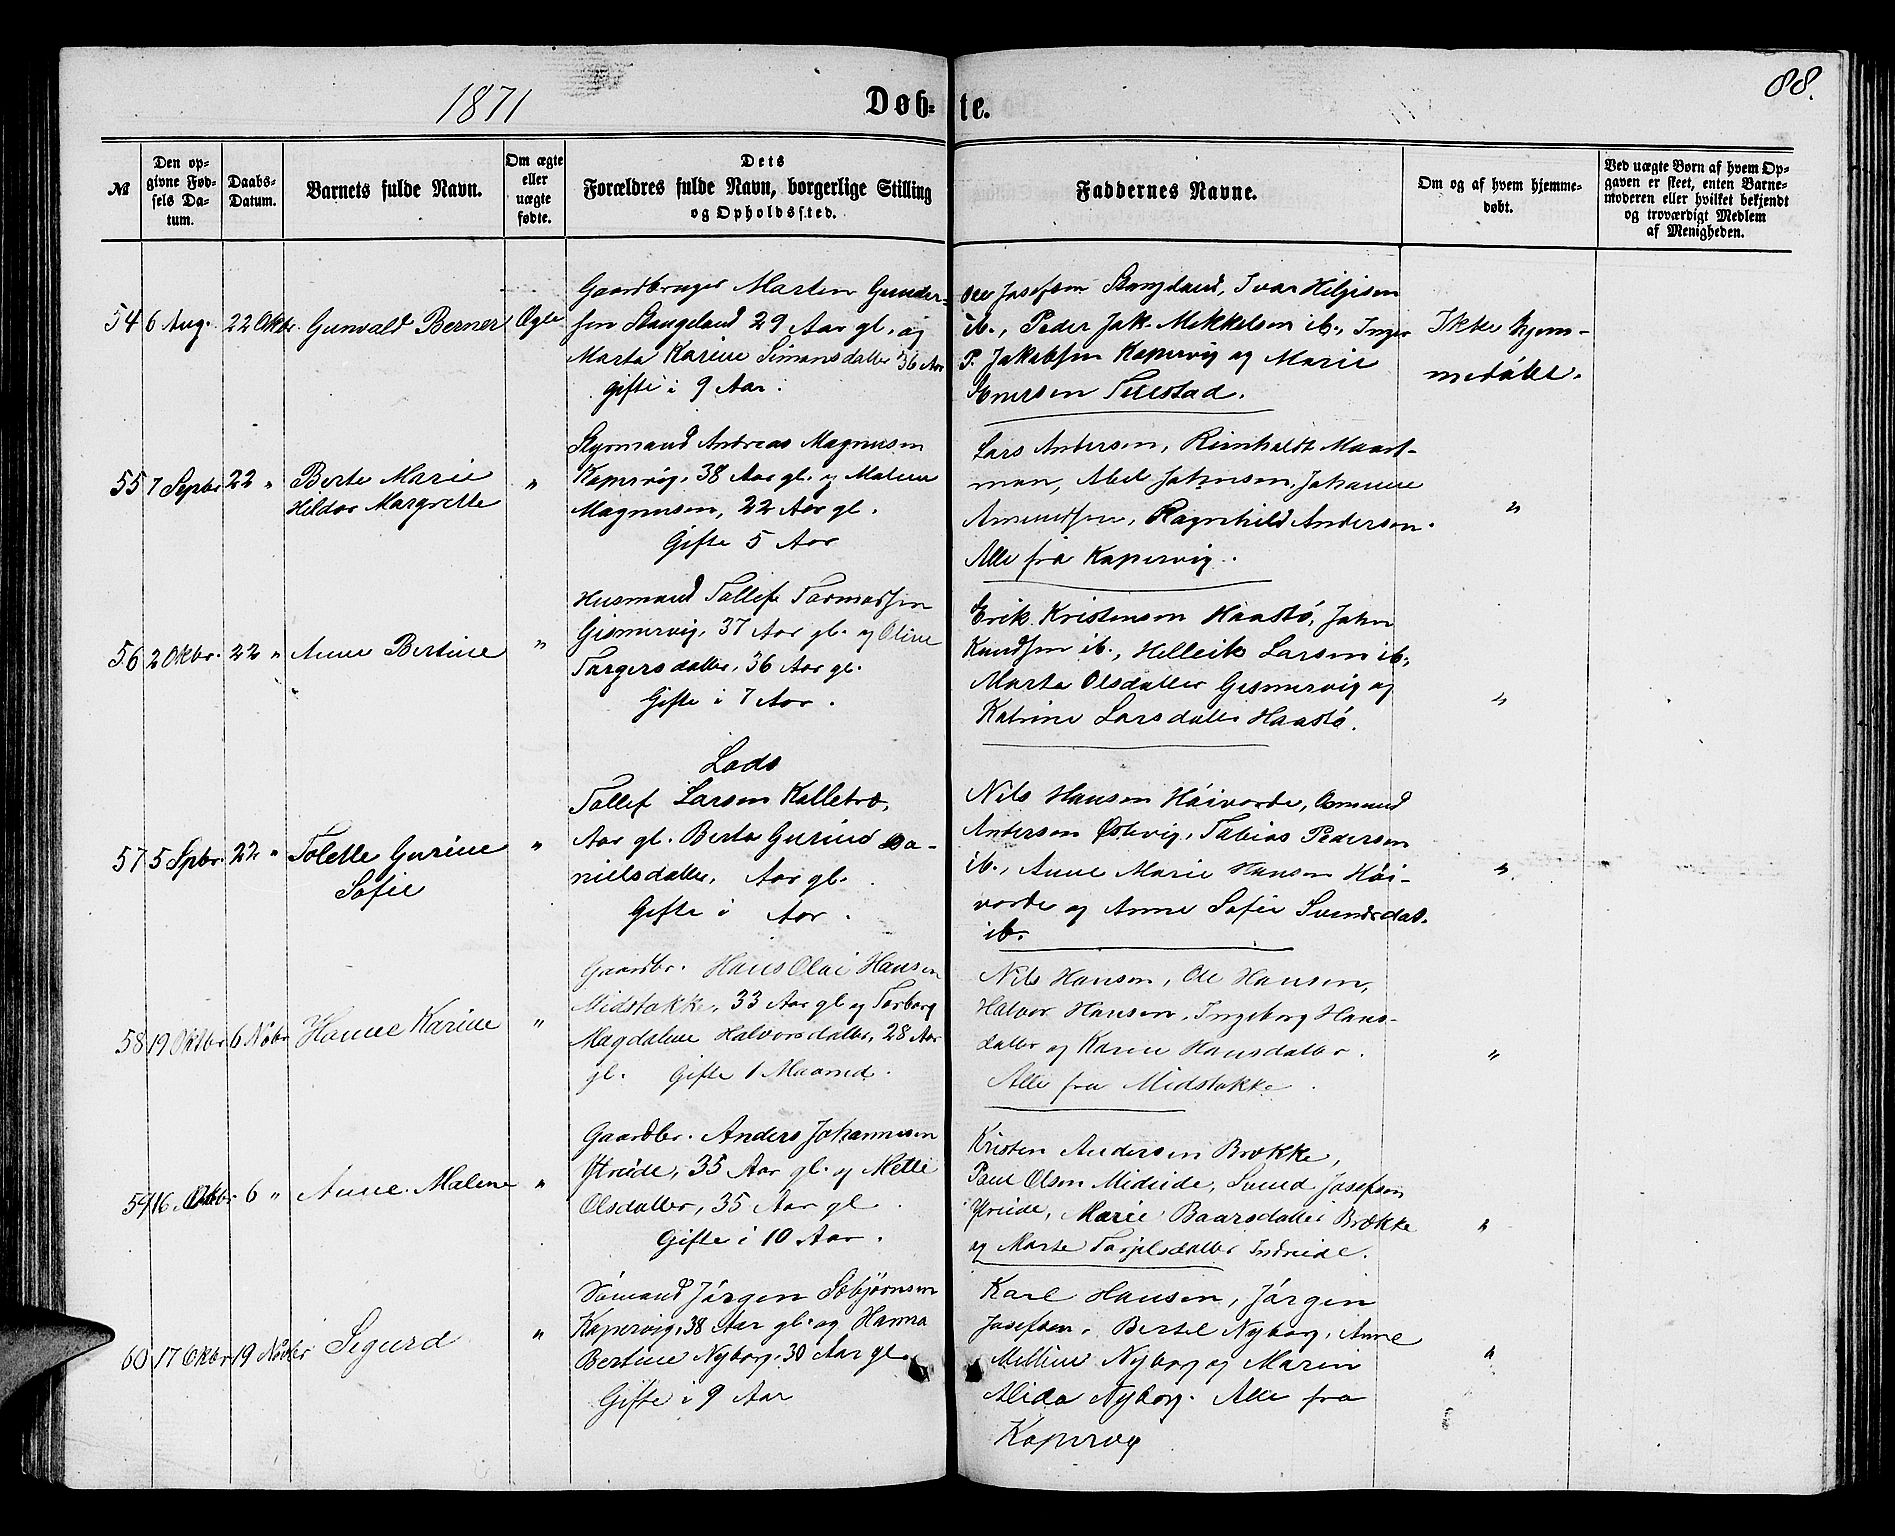 1871
Døb-
te.
88.
№
Den op-
givne Fød-
sels Da-
tum.
Daabs-
Datum.
Barnets fulde Navn.
Om ægte
eller
uægte
fødte.
Dets
Forældres fulde Navn, borgerlige Stilling
og Opholdssted.
Faddernes Navne.
Om og af hvem hjemme-
døbt.
Ved uægte Børn af hvem Op-
gaven er skeet, enten Barne-
moderen eller hvilket bekjendt
og troværdigt Medlem
af Menigheden.
54 6 Aug. 22 Oktr. Gunvald Berner Ægte
Gaardbruger Marten Gunder-
sen Stangeland 29 Aar gl. og
Marta Karine Simonsdatter 36 Aar
gifte i 9 Aar.
Josefsen Stangeland, Ivar Hiljesen
ib., Peder Jak. Mikkelsen ib., Inger
P. Jakobsen Kopervig og Marie
Enersen
Ikke hjem-
medøbt.
55 7 Sepbr 22 " Berte Marie
Hildar Margrette "
Styrmand Andreas Magnusen
Kopervig, 38 Aar gl. og Malene
Magnusen, 22 Aar gl.
Gifte 5 Aar
Lars Andersen, Reinholdt Maart-
man, Abel Johnsen, Johanne
Amundsen, Ragnhild Andersen.
Alle fra Kopervig.
"
56 2 Okbr. 22 " Anne Bertine "
Husmand Tollef Tormodsen
Gismervig, 37 Aar gl. og Oline
Torgersdatter, 36 Aar gl.
Gifte i 7 Aar.
Erik Kristensen Haastø, John
Knudsen ib., Helleik Larsen ib.,
Marta Olsdatter Gismervig og
Katrine Larsdatter Haastø.
"
57 5 Spbr. 22 " Tolette Gurine
Sofie "
Lods
Tollef Larsen Kolletvæ,
Aar gl. Berta Gurine Da-
nielsdatter, Aar gl.
Gifte i Aar.
Nils Hansen Høivarde, Osmund
Andersen Østevig, Tobias Pedersen
ib., Anne Marie Hansen Høi-
varde og Anne Sofie Svendsdat.
ib.
"
58 19 Oktbr 6 Nobr Hanne Karine "
Gaardbr. Hans Olai Hansen
Midstokke, 33 Aar gl og Torborg
Magdalene Halvorsdatter, 28 Aar
gl. Gifte 1 Maaned.
Nils Hansen, Ole Hansen,
Halvor Hansen, Ingeborg Hans-
datter og Karen Hansdatter.
Alle fra Midstokke.
"
59 16 Okbr 6 " Anne Malene "
Gaardbr. Anders Johannesen
Ytreide, 35 Aar gl. og Mette
Olsdatter, 35 Aar gl.
Gifte i 10 Aar.
Kristen Andersen Brække,
Paul Olsen Mideide, Svend Josefsen
Ytreide, Marie Baarsdatter Brække
og Marte Torjelsdatter Indreide.
"
60 17 Okbr 19 Novbr Sigurd "
Sømand Jørgen Sebjørnsen
Kopervig, 38 Aar gl. og Hanna
Bertine Nyborg, 30 Aar gl.
Gifte i 9 Aar
Karl Hansen, Jørgen
Josefsen, Bertel Nyborg, Anne
Melline Nyborg og Maren
Alida Nyborg. Alle fra
Kopervig
"